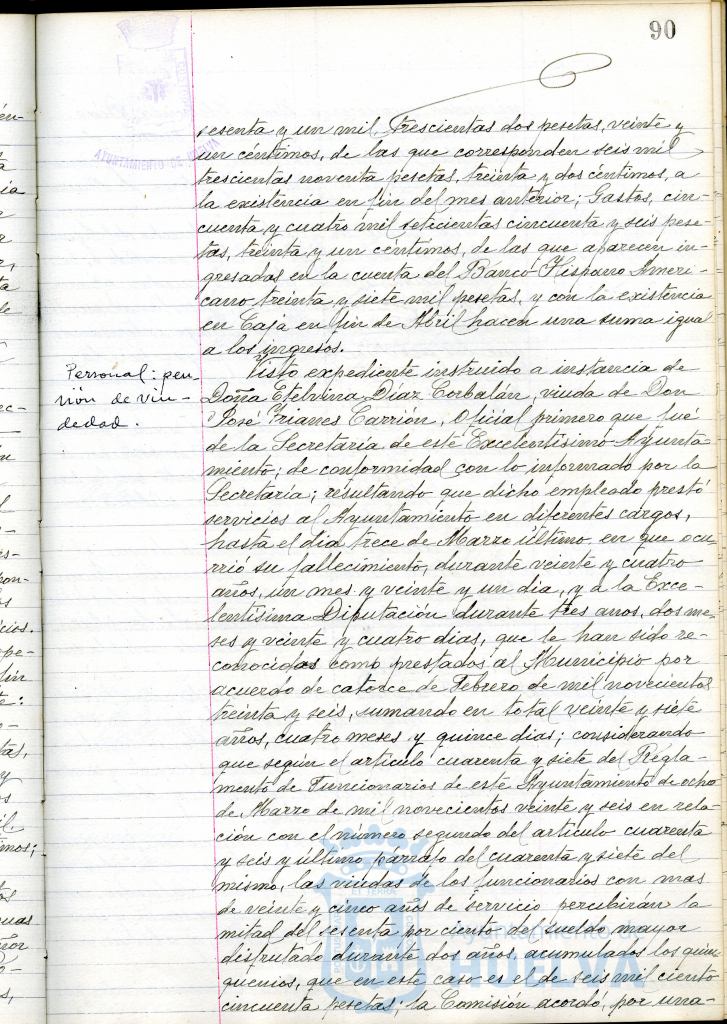 90
AYUNTAMIENTO DE HUELVA
sesenta y un mil, trescientas dos pesetas, veinte y
un céntimos, de las que corresponden seis mil
trescientas noventa pesetas, treinta y dos céntimos, a
la existencia en fin del mes anterior; Gastos, cin-
cuenta y cuatro mil setecientas cincuenta y seis pese-
tas, treinta y un céntimos, de las que aparecen in-
gresadas en la cuenta del Banco Hispano Ameri-
cano treinta y siete mil pesetas, y con la existencia
en Caja en fin de Abril hacen una suma igual
a los ingresos.
Personal: pen-
sión de viu-
dedad.
Visto expediente instruido a instancia de
Doña Etelvina Díaz Corbalán, viuda de Don
José Trianes Carrión, Oficial primero que fué
de la Secretaría de este Excelentísimo Ayunta-
miento; de conformidad con lo informado por la
Secretaria; resultando que dicho empleado prestó
servicios al Ayuntamiento en diferentes cargos,
hasta el dia trece de Marzo último, en que ocu-
rrió su fallecimiento, durante veinte y cuatro
años, un mes y veinte y un dia, y a la Exce-
lentísima Diputación durante tres años, dos me-
ses y veinte y cuatro dias, que le han sido re-
conocidos como prestados al Municipio por
acuerdo de catorce de Febrero de mil novecientos
treinta y seis, sumando en total veinte y siete
años, cuatro meses y quince dias; considerando
que según el artículo cuarenta y siete del Regla-
mento de Funcionarios de este Ayuntamiento de ocho
de Marzo de mil novecientos veinte y seis en rela-
ción con el número segundo del artículo cuarenta
y seis y último párrafo del cuarenta y siete del
mismo, las viudas de los funcionarios con mas
de veinte y cinco años de servicio percibirán la
mitad del sesenta por ciento del sueldo mayor
disfrutado durante dos años, acumulados los quin-
quenios, que en este caso es el de seis mil ciento
cincuenta pesetas; la Comisión acordó, por una-
Ayuntamiento de
HUELVA